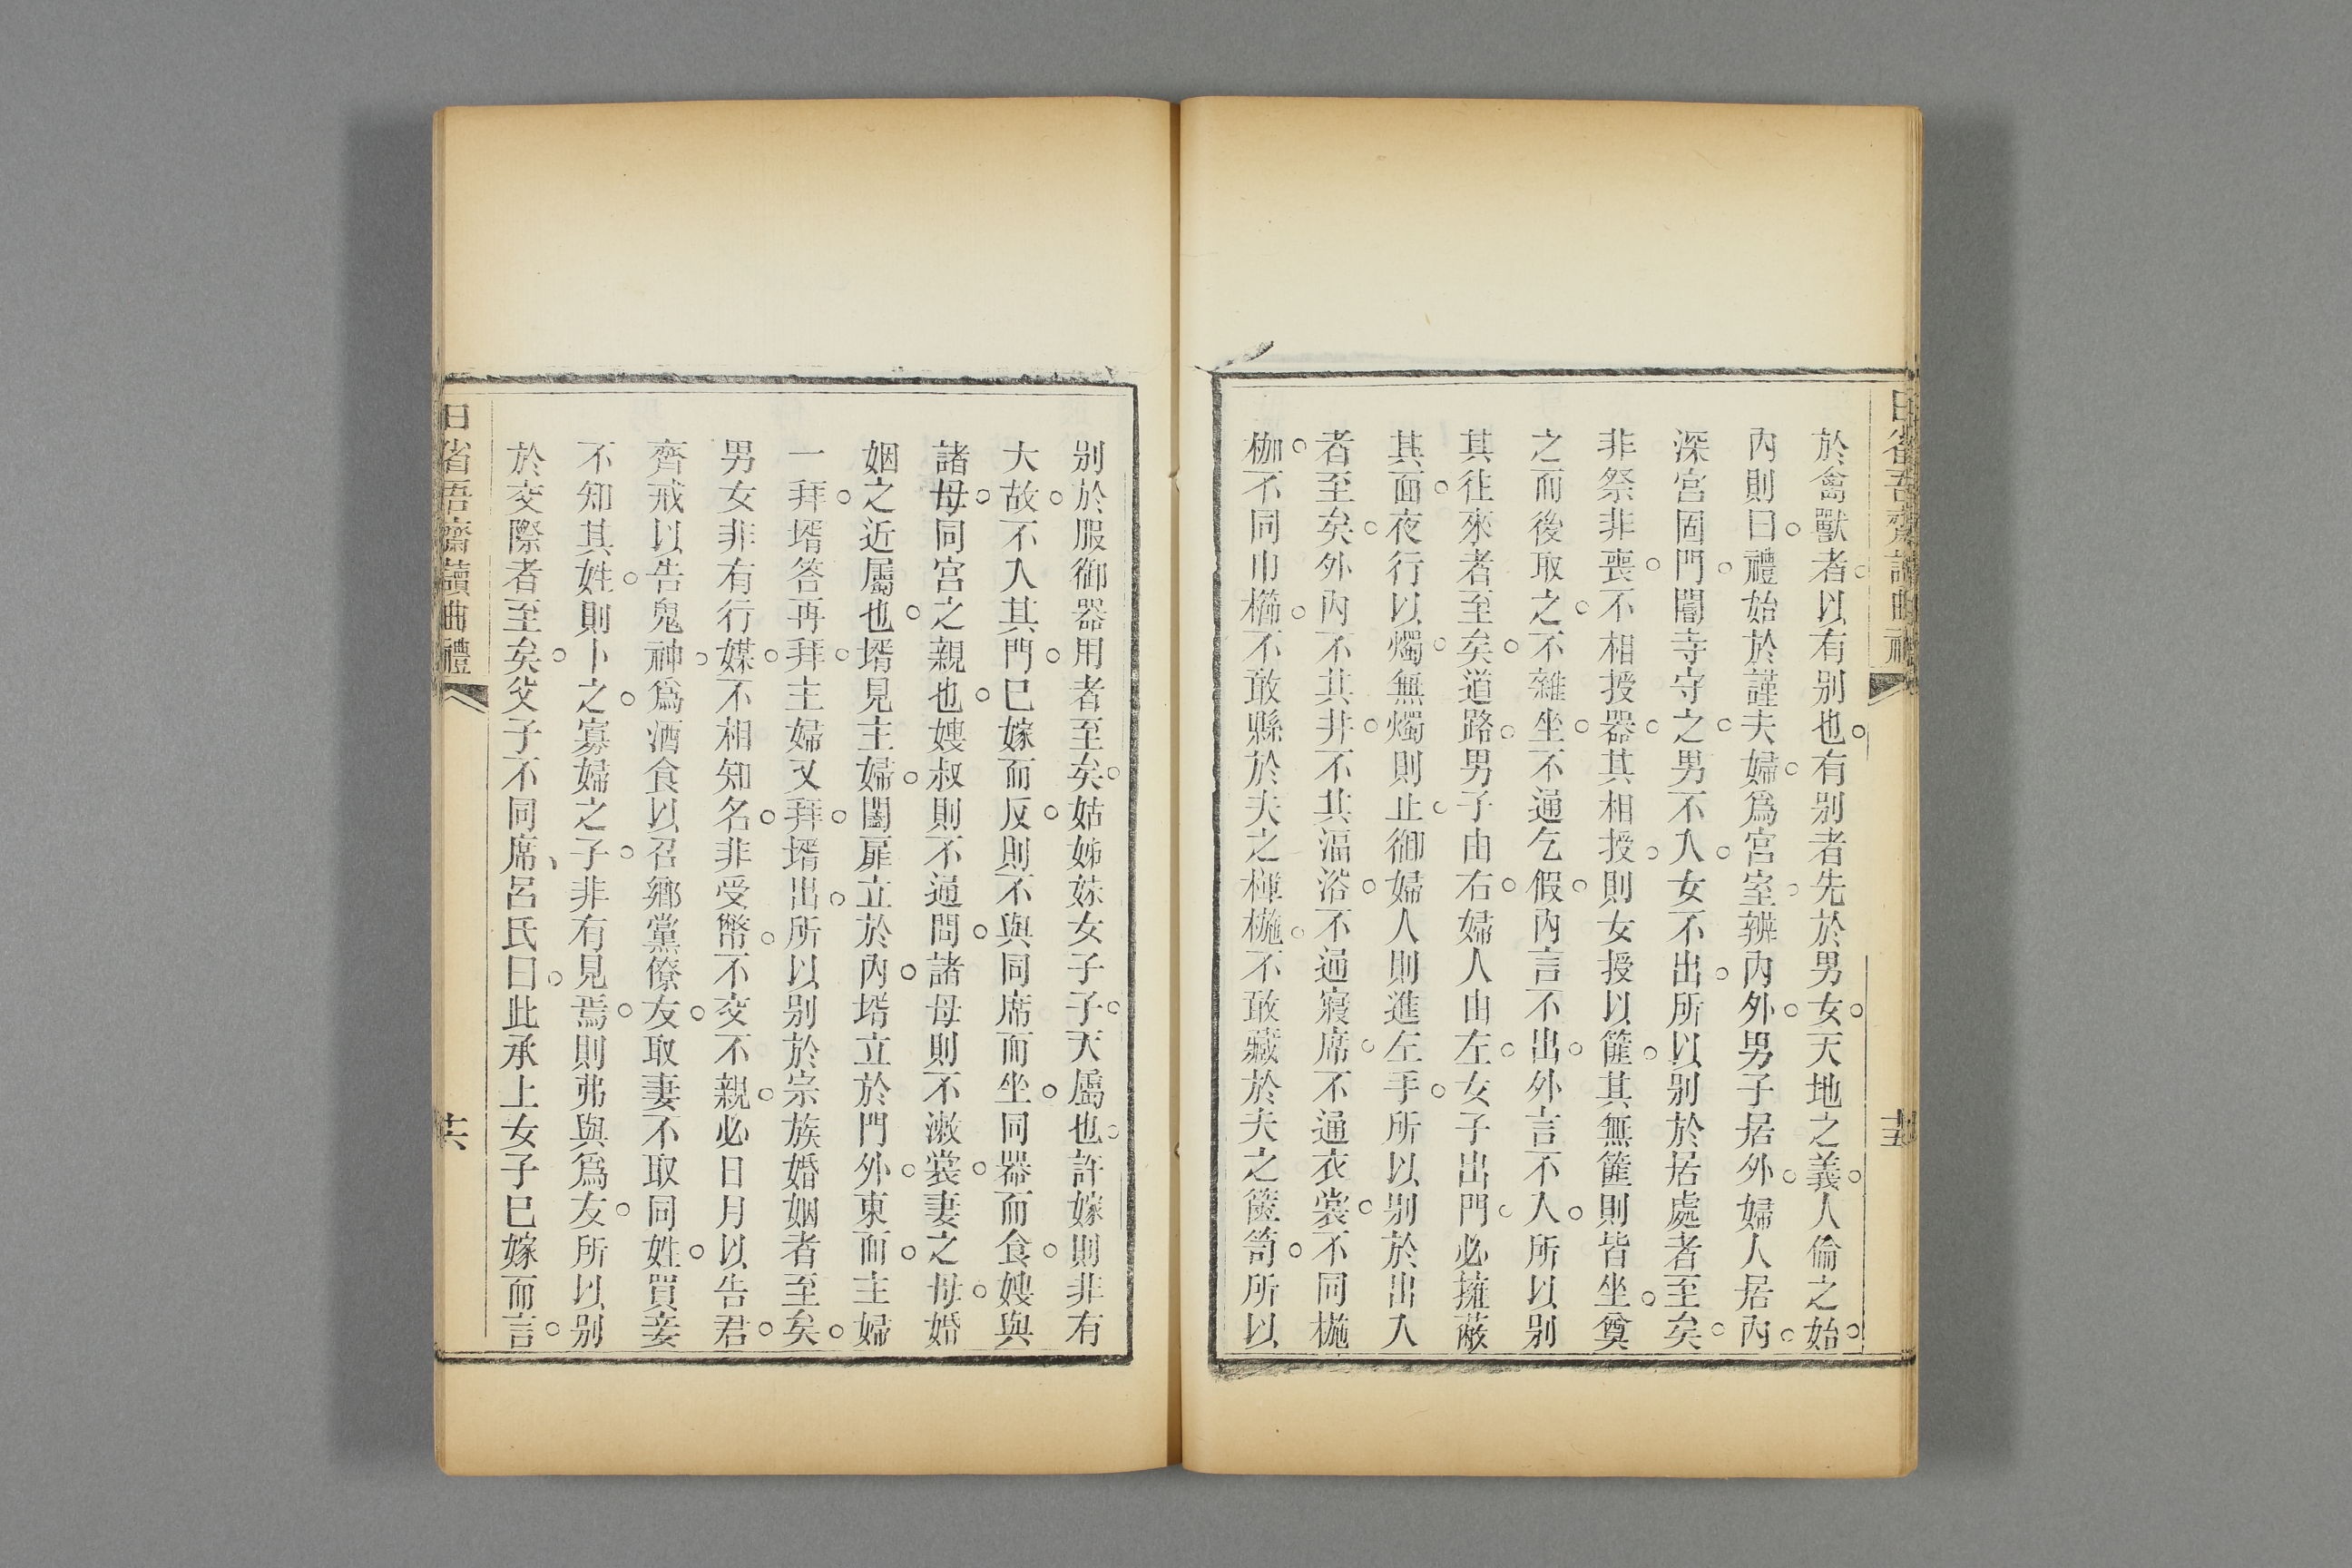 於禽獸者。以有别也。有别者先於男女。天地之義。人倫之始。
內則曰。禮始於謹夫婦。爲宮室。辨內外。男子居外。婦人居內。
深宮固門。閽寺守之。男不入。女不出。所以别於居處者至矣。
非祭非喪。不相授器。其相授。則女授以篚。其無篚則皆坐。奠
之而後取之。不雜坐。不通乞假。內言不出。外言不入。所以别
其往來者至矣。道路。男子由右。婦人由左。女子出門。必擁蔽
其面。夜行以燭。無燭則止。御婦人則進左手。所以别於出入
者至矣。外內不共井。不共湢浴。不通寢席。不通衣裳。不同椸
枷。不同巾櫛。不敢縣於夫之楎椸。不敢藏於夫之篋笥。所以
别於服御器用者至矣。姑姊妹女子子。天屬也。許嫁則非有
大故。不入其門。已嫁而反。則不與同席而坐。同器而食。嫂與
諸母。同宮之親也。嫂叔則不通問。諸母則不漱裳。妻之母。婚
姻之近屬也。壻見主婦。闔扉立於內。壻立於門外。東面。主婦
一拜。壻答再拜。主婦又拜。壻出。所以别於宗族婚姻者至矣。
男女非有行媒。不相知名。非受幣。不交不親。必日月以告君。
齊戒以告鬼神。爲酒食以召鄉黨僚友。取妻不取同姓。買妾
不知其姓。則卜之。寡婦之子。非有見焉。則弗與爲友。所以别
於交際者至矣。父子不同席、呂氏曰。此承上女子已嫁而言。
日省吾齋讀曲禮
十六